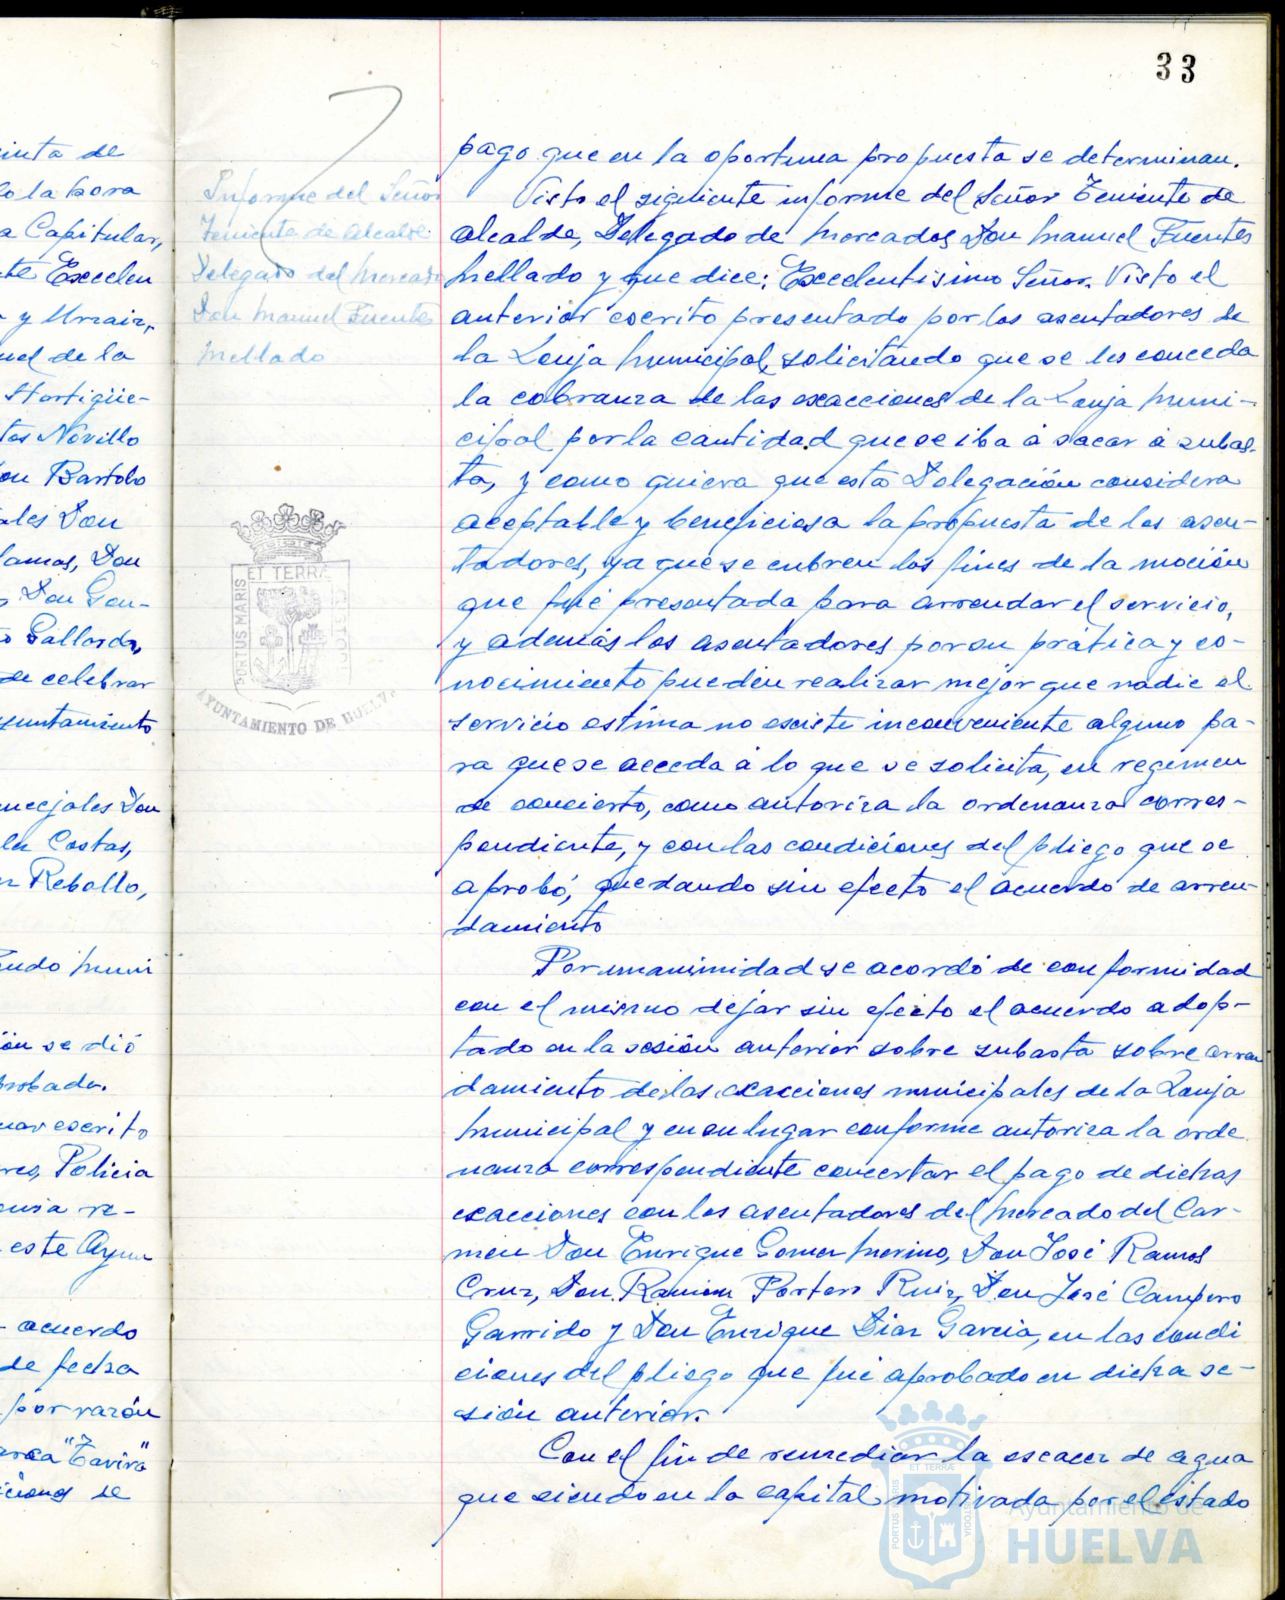 33
inta de
o la hora
a Capitular,
te Excelen
y Urzaiz,
uel de la
Hortigüe-
tos Novillo
on Bartolo
ales Don
lamas, Don
Don Gon-
Gallardo,
de celebrar
yuntamiento
ncejales Don
Costas,
Rebollo,
ndo muni
ión se dió
probada.
escrito
res, Policia
re-
este Ayun
acuerdo
de fecha
por razón
arca "Tavira"
iciones se
Informe del Señor
Teniente de Alcalde
Delegado del Mercado
Don Manuel Fuentes
Mellado
ET TERRÆ
PORTUS MARIS
CUSTODIA
AYUNTAMIENTO DE HUELVA
pago que en la oportuna propuesta se determinan.
Visto el siguiente informe del Señor Teniente de
alcalde, Delegado de Mercados Don Manuel Fuentes
Mellado y que dice: Excelentisimo Señor. Visto el
anterior escrito presentado por los asentadores de
la Lonja Municipal, solicitando que se les conceda
la cobranza de las exacciones de la Lonja Muni-
cipal por la cantidad que se iba á sacar á subas-
ta, y como quiera que esta Delegación considera
aceptable y beneficiosa la propuesta de los asen-
tadores, ya que se cubren los fines de la moción
que fué presentada para arrendar el servicio,
y además los asentadores por su prática y co-
nocimiento pueden realizar mejor que nadie el
servicio estima no existe inconveniente alguno pa-
ra que se acceda á lo que se solicita, en regimen
de concierto, como autoriza la ordenanza corres-
pondiente, y con las condiciones del pliego que se
aprobó, quedando sin efecto el acuerdo de arren-
damiento
Por unanimidad se acordó de conformidad
con el mismo dejar sin efecto el acuerdo adop-
tado en la sesión anterior sobre subasta sobre arren
damiento de las exacciones municipales de la Lonja
Municipal y en su lugar conforme autoriza la orde
nanza correspondiente concertar el pago de dichas
exacciones con los asentadores del Mercado del Car-
men Don Enrique Gomez Merino, Don José Ramos
Cruz, Don Ramon Portero Ruiz, Don José Campero
Garrido y Don Enrique Diaz Garcia, en las condi
ciones del pliego que fué aprobado en dicha se-
sión anterior.
Con el fin de remediar la escacez de agua
que siendo en la capital motivada por el estado
ET TERRÆ
PORTUS MARIS
CUSTODIA
Ayuntamiento de
HUELVA